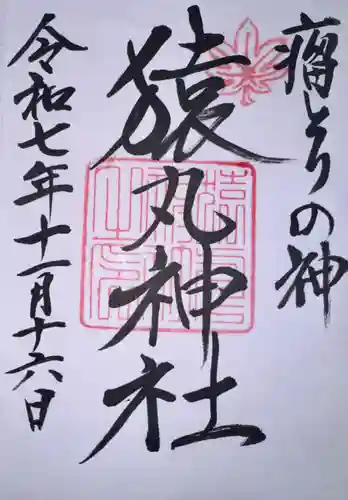 瘤とりの神
猿丸神社
令和七年十一月十六日